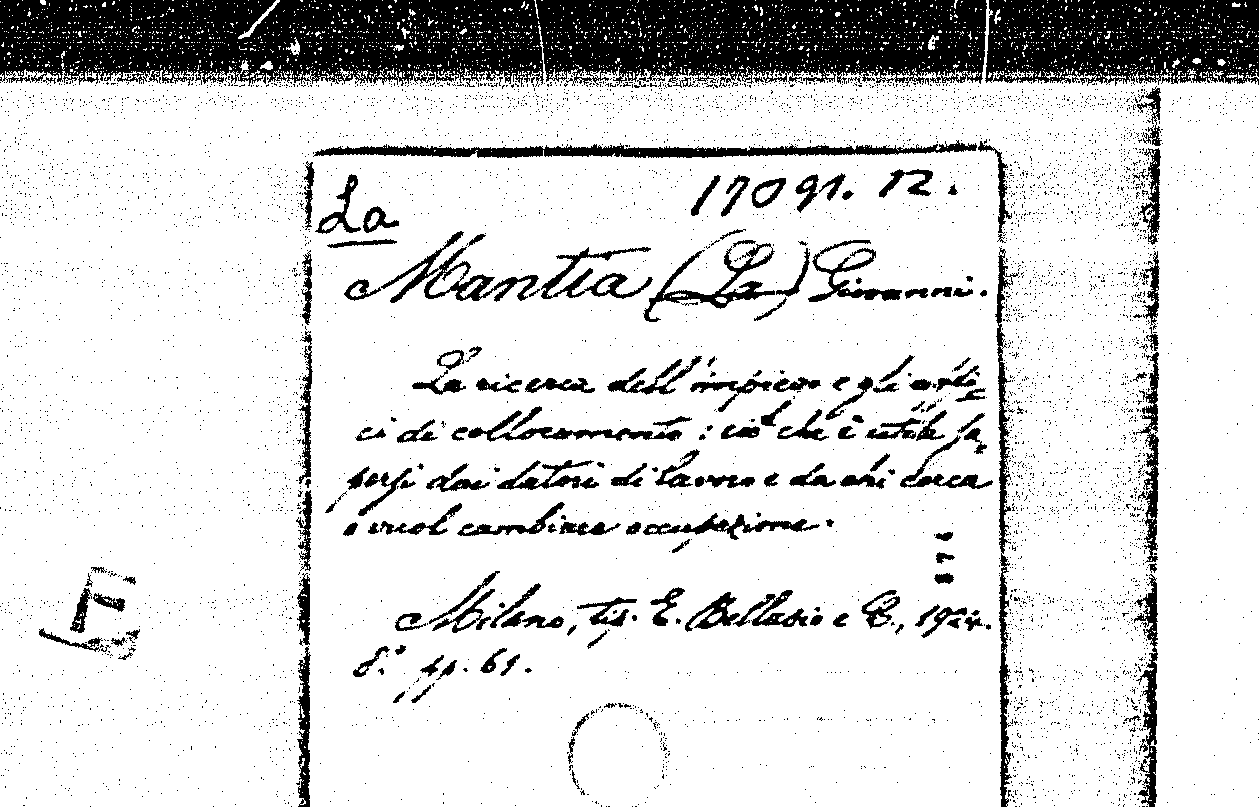 La
17091. 12.
Mantia (La) Giovanni.
La ricerca dell'impiego e gli uffi-
ci di collocamento: ciò che è utile sa-
persi dai datori di lavoro e da chi cerca
o vuol cambiare occupazione.
876
Milano, tip. E. Bellasio e C., 1924.
8.° pp. 61.
F